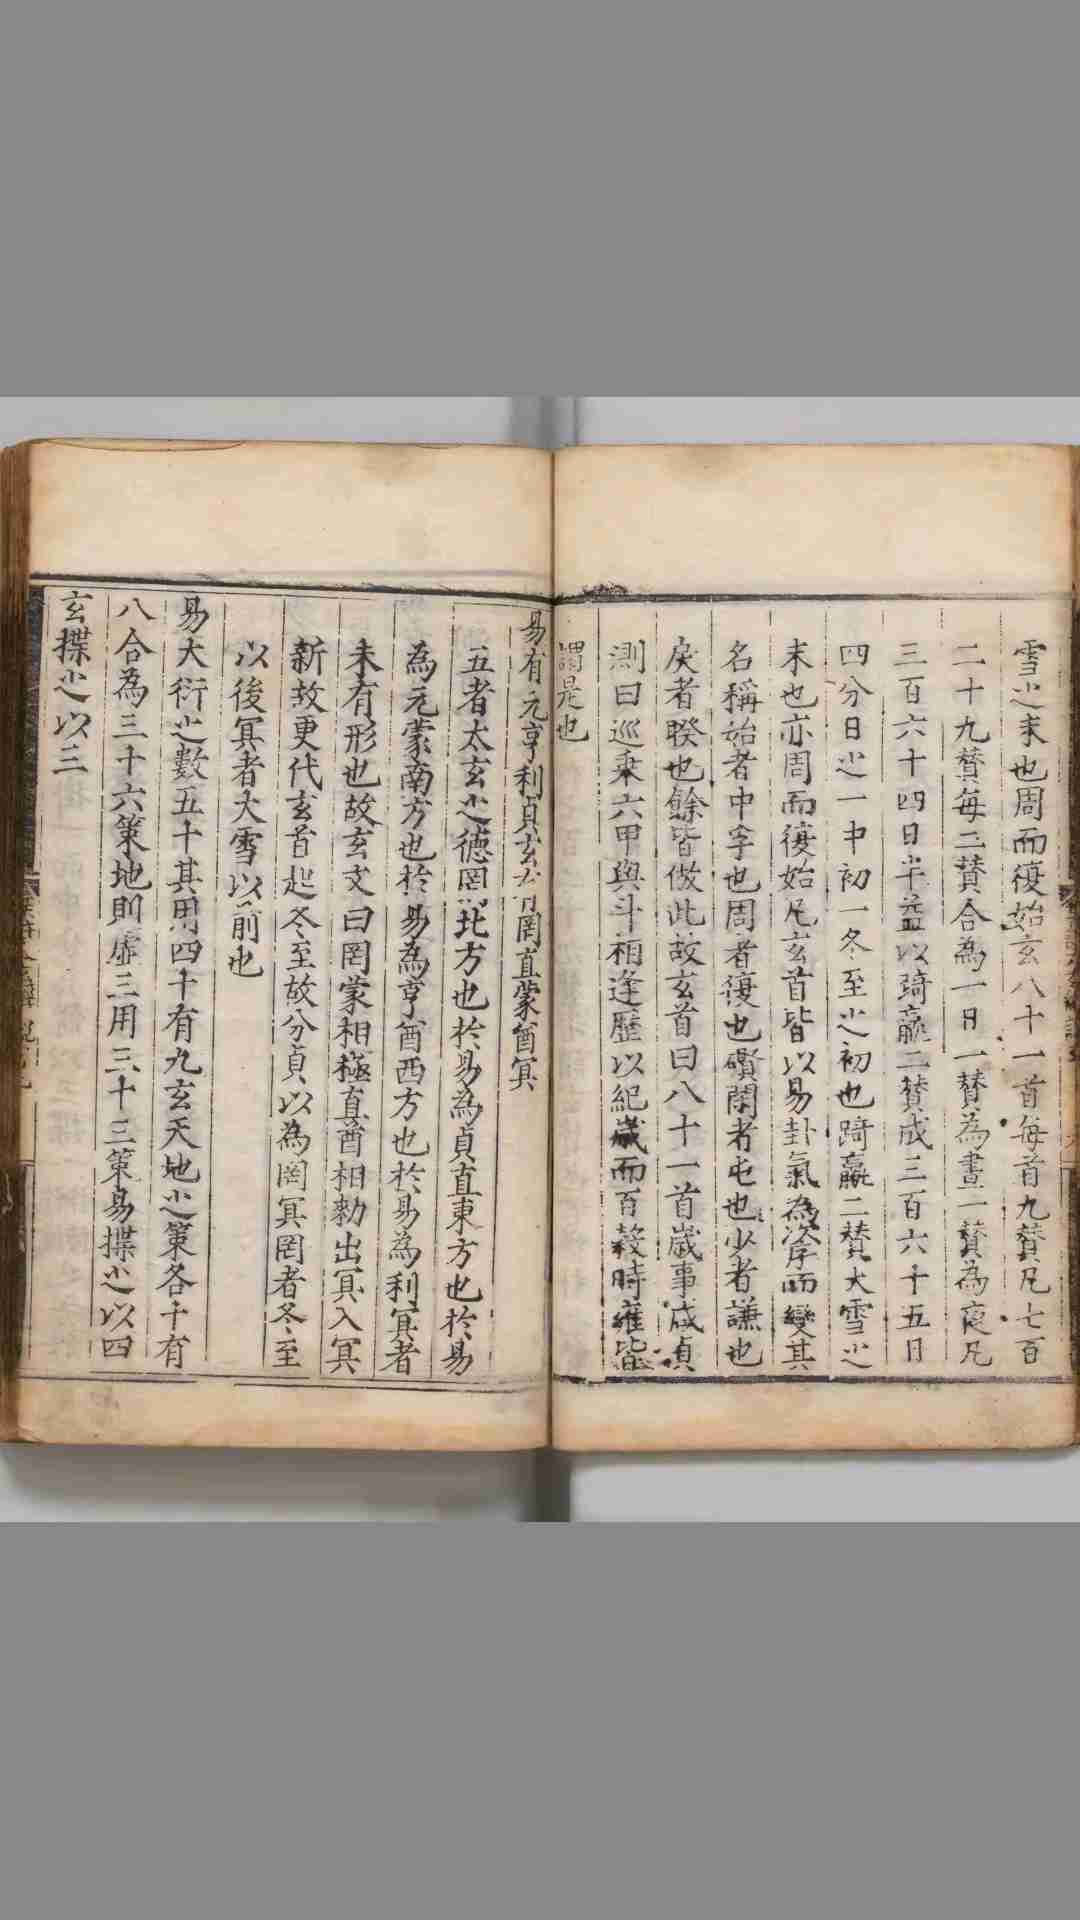 雪之末也周而復始玄八十一首每首九贊凡七百
二十九贊每二贊合為一日一贊為晝一贊為夜凡
三百六十四日半益以踦贏二贊成三百六十五日
四分日之一中初一冬至之初也踦贏二贊大雪之
末也亦周而復始凡玄首皆以易卦氣為次序而變其
名稱始者中孚也周者復也礥閑者屯也少者謙也
戾者睽也餘皆倣此故玄首曰八十一首歲事咸貞
測曰巡乘六甲與斗相逢歷以紀歲而百穀時雍皆
謂是也
易有元亨利貞玄有罔直蒙酋冥
五者太玄之德罔北方也於易為貞直東方也於易
為元蒙南方也於易為亨酋西方也於易為利冥者
未有形也故玄文曰罔蒙相極直酋相勑出冥入冥
新故更代玄首起冬至故分貞以為罔冥罔者冬至
以後冥者大雪以前也
易大衍之數五十其用四十有九玄天地之策各十有
八合為三十六策地則虛三用三十三策易揲之以四
玄揲之以三